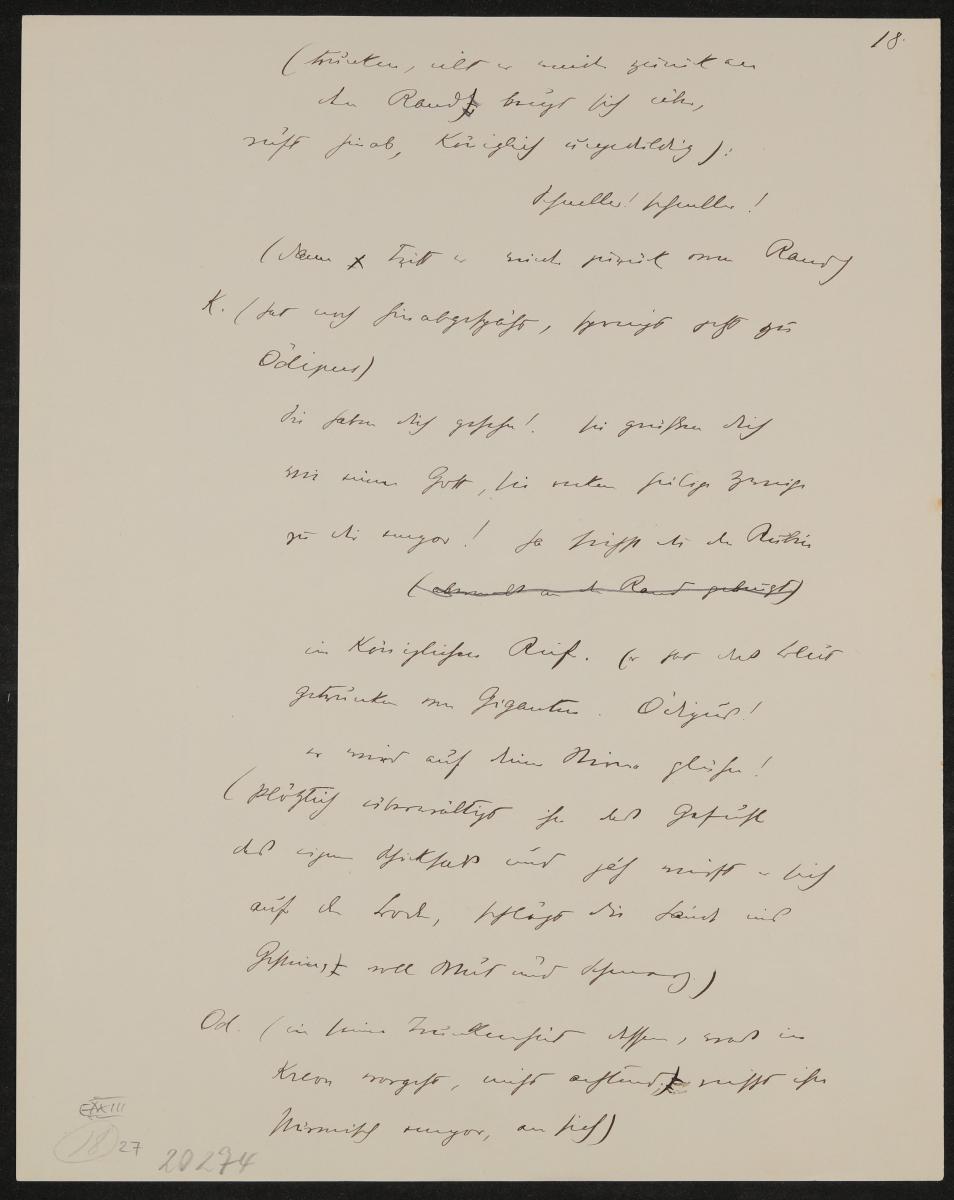 18.
(trunken, eilt er wieder zurück an
den Rand, beugt sich über,
ruft hinab, königlich ungeduldig):
Schneller! schneller!
(dann tritt er wieder zurück vom Rand)
K. (hat noch hinabgespäht, springt jetzt zu
Ödipus)
Sie haben dich gesehen! Sie grüßen dich
wie einen Gott, sie recken heilige Zweige
zu dir empor! Ja trifft dir der Rubin
(abermals an den Rand gebeugt)
im königlichen Reif. Er hat das Blut
getrunken von Giganten. Ödipus!
er wird auf deiner Stirne glühen!
(plötzlich überwältigt ihn das Gefühl
des eigenen Schicksals und jäh wirft er sich
auf den Boden, schlägt die Hände ins
Gesicht, voll Wut und Schmerz.)
Od. (in seiner Trunkenheit dessen, was in
Kreon vorgeht, nicht achtend, reißt ihn
stürmisch empor, an sich)
EIII
18 27
20274